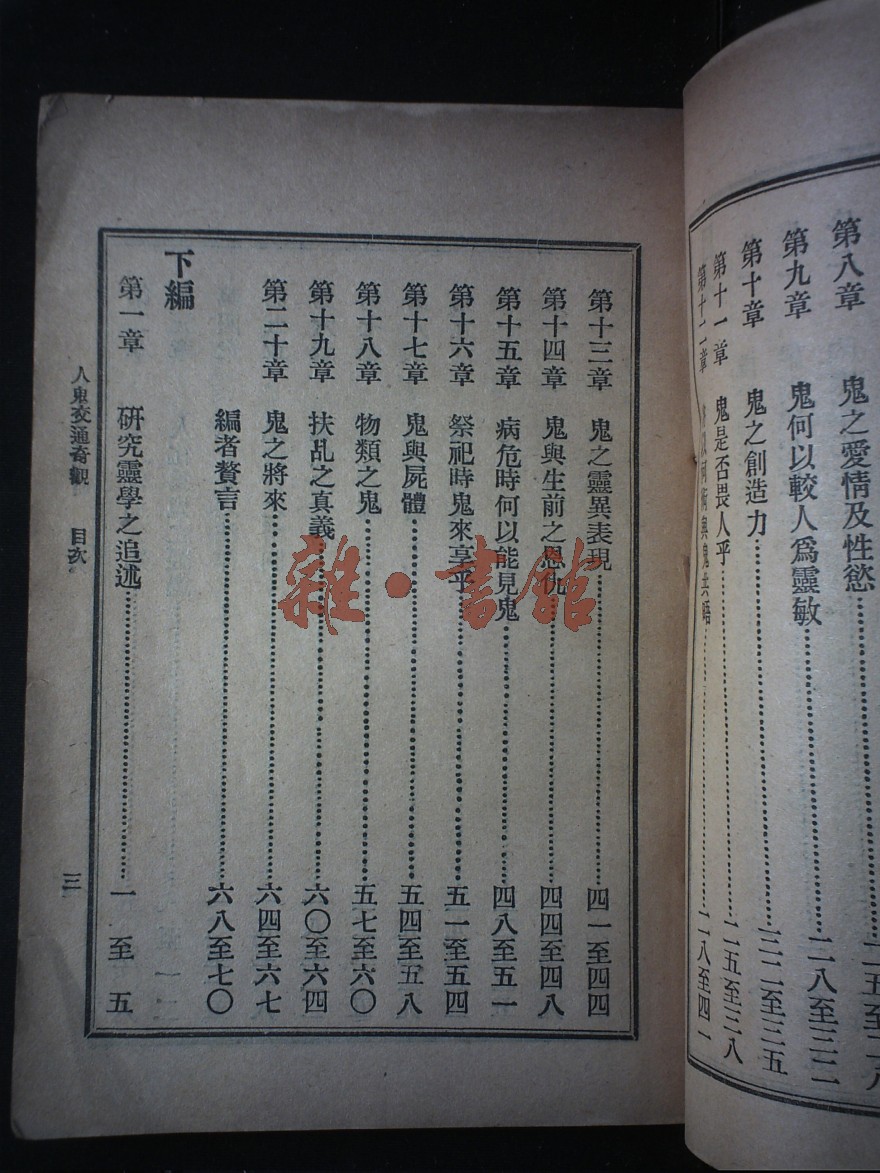 第八章 鬼之愛情及性慾
第九章 鬼何以較人爲靈敏 二八至三二
第十章 鬼之創造力 三二至三五
第十一章 鬼是否畏人乎 三五至三八
第十二章 與鬼共晤
第十三章 鬼之靈異表現 四一至四四
第十四章 鬼與生前之恩仇 四四至四八
第十五章 病危時何以能見鬼 四八至五一
第十六章 祭祀時鬼來享乎 五一至五四
第十七章 鬼與屍體 五四至五八
第十八章 物類之鬼 五七至六〇
第十九章 扶乩之真義 六〇至六四
第二十章 鬼之將來 六四至六七
編者贅言 六八至七〇
下編
第一章 研究靈學之追述 一至五
人鬼交通奇觀 目次 三
雜·書館